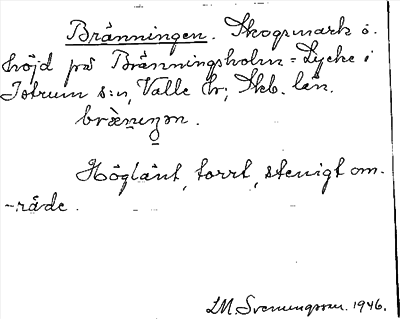 Bränningen. Skogsmark o.
höjd på Bränningsholm = Lycke i
Istrum s:n, Valle hr; Skb. län.
bræ̀nıŋən.
Höglänt, torrt, stenigt om-
-råde.
LM. Svenungsson. 1946.